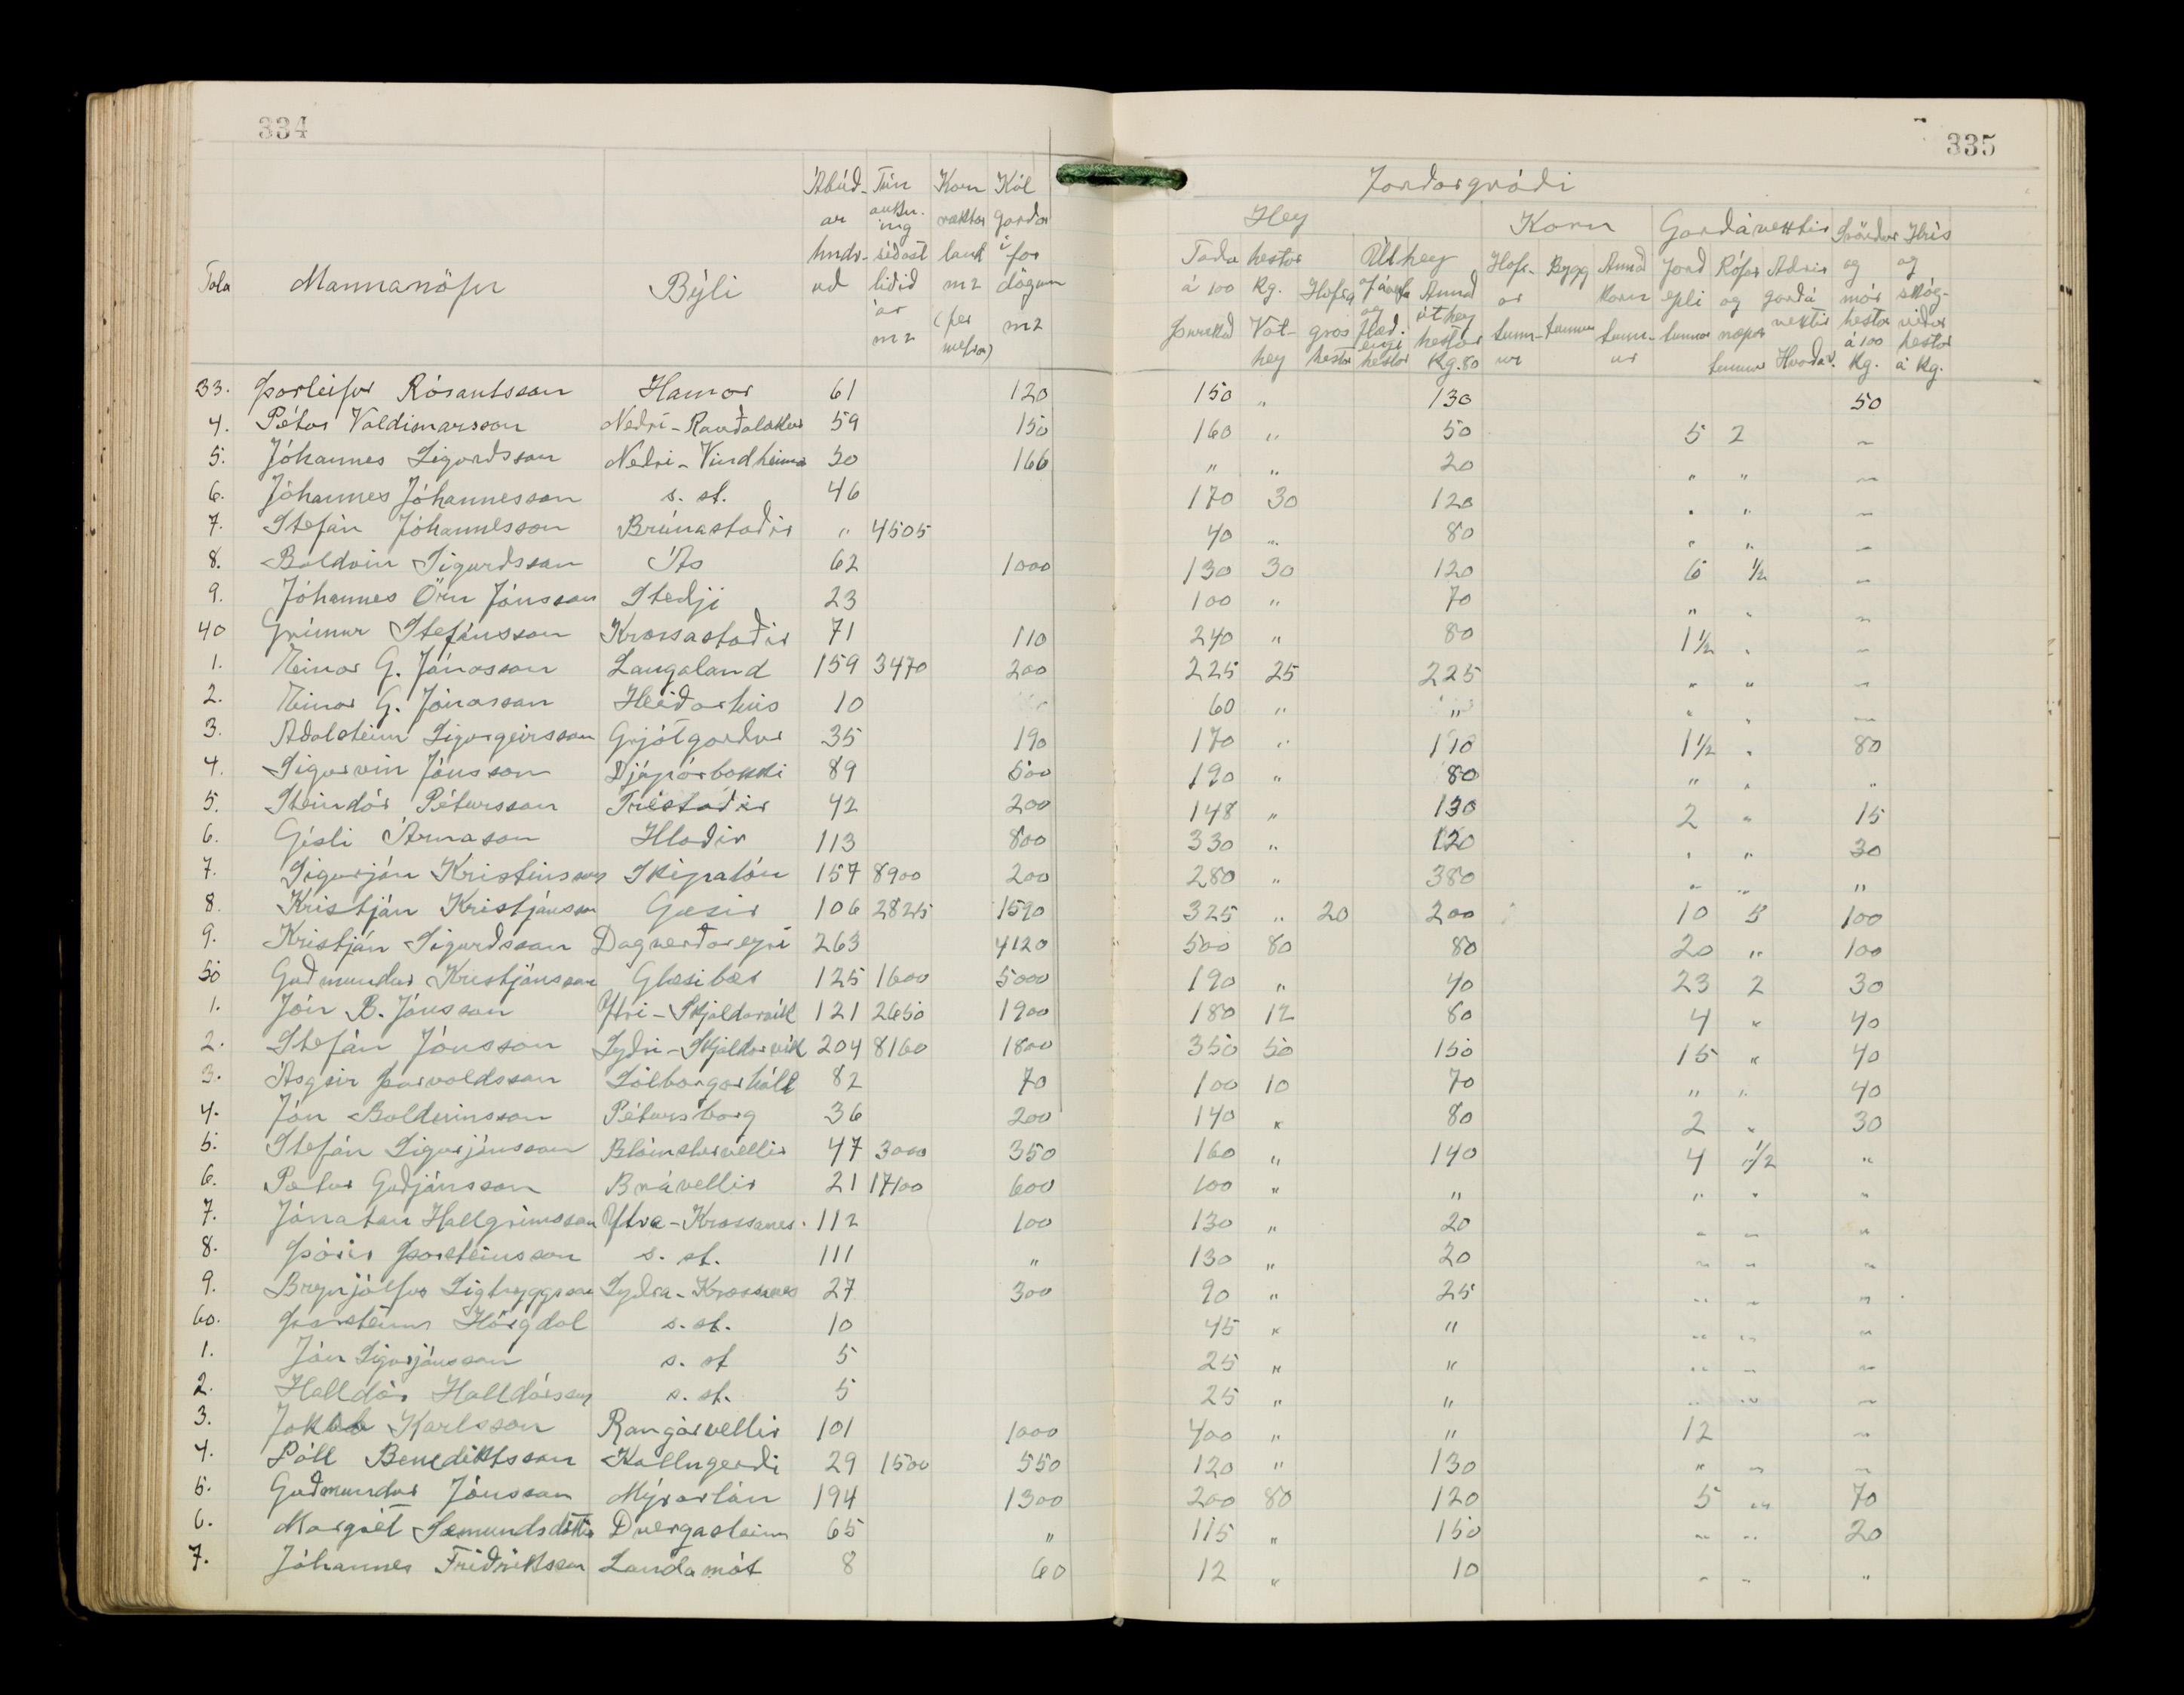 334
335
Jarðargróði
Ábúð- Tún Korn Kál
ar auku. ræktar garðar
ing í
hndr- síðast land for
að liðið m2 dögum
ár (fer m2
m2 metrar)
Tala Mannanöfn Býli
Hey Korn Garðávextir Svörður Hrís
Taða hestar Úthey Hafr- Bygg Annað Jarð Rófur Aðrir og og
á 100 Kg. Hafra Annað ar korn epli og garðá mór skóg-
þurrkað Vot- gras Flæð. úthey tunn- tunnur tunn- tunnur næpur vextir hestar viður
hey hestar engi hestar ur ur tunnur Hvaða? á 100 hestar
hestar Kg. 80 Kg. á Kg.
33. Þorleifur Rósantsson Hamar 61 120 150 " 130 50
4. Pétur Valdimarsson Neðri-Rauðalækur 59 150 160 " 50 5 2 "
5. Jóhannes Sigurðsson Neðri-Vindheimar 30 166 " " 20 " " "
6. Jóhannes Jóhannesson s. st. 46 170 30 120 " " "
7. Stefán Jóhannesson Brúnastaðir " 4505 40 " 80 " " "
8. Baldvin Sigurðsson Ás 62 1000 130 30 120 6 1/2 "
9. Jóhannes Örn Jónsson Steðji 23 100 " 70 " " "
40 Grímur Stefánsson Krossastaðir 71 110 240 " 80 1 1/2 " "
1. Einar G. Jónasson Laugaland 159 3470 200 225 25 225 " " "
2. Einar G. Jónasson Heiðarhús 10 60 " " " " "
3. Aðalsteinn Sigurgeirsson Grjótgarður 35 190 170 " 110 1 1/2 " 80
4. Sigurvin Jónsson Djúpárbakki 89 500 190 " 80 " " "
5. Steindór Pétursson Tréstaðir 42 200 148 " 130 2 " 15
6. Gísli Árnason Hlaðir 113 800 330 " 120 " " 30
7. Sigurjón Kristinsson Skipalón 157 8900 200 280 " 380 " " "
8. Kristján Kristjánsson Gæsir 106 2825 1590 325 " 20 200 10 5 100
9. Kristján Sigurðsson Dagverðareyri 263 4120 500 80 80 20 " 100
50 Guðmundur Kristjánsson Glæsibær 125 1600 5000 190 " 40 23 2 30
1. Jón B. Jónsson Ytri-Skjaldarvík 121 2650 1900 180 12 80 4 " 40
2. Stefán Jónsson Syðri-Skjaldarvík 204 8160 1800 350 50 150 15 " 40
3. Ásgeir Þorvaldsson Sólborgarhóll 82 70 100 10 70 " " 40
4. Jón Baldvinsson Pétursborg 36 200 140 " 80 2 " 30
5. Stefán Sigurjónsson Blómsturvellir 47 3000 350 160 " 140 4 1/2 "
6. Pétur Guðjónsson Brávellir 21 17100 600 100 " " " " "
7. Jónatan Hallgrímsson Ytra-Krossanes 112 100 130 " 20 " " "
8. Þórir Þorsteinsson s. st. 111 " 130 " 20 " " "
9. Brynjólfur Sigtryggsson Syðra-Krossanes 27 300 90 " 25 " " "
60. Þorsteinn Hörgdal s. st. 10 45 " " " " "
1. Jón Sigurjónsson s. st 5 25 " " " " "
2. Halldór Halldórsson s. st. 5 25 " " " " "
3. Jakob Karlsson Rangárvellir 101 1000 400 " " 12 "
4. Páll Benediktsson Kollugerði 29 1500 550 120 " 130 " " "
5. Guðmundur Jónsson Mýrarlón 194 1300 200 80 120 5 " 70
6. Margrét Sæmundsdóttir Dvergasteinn 65 " 115 " 150 " " 20
7. Jóhannes Friðriksson Landamót 8 60 12 " 10 " " "